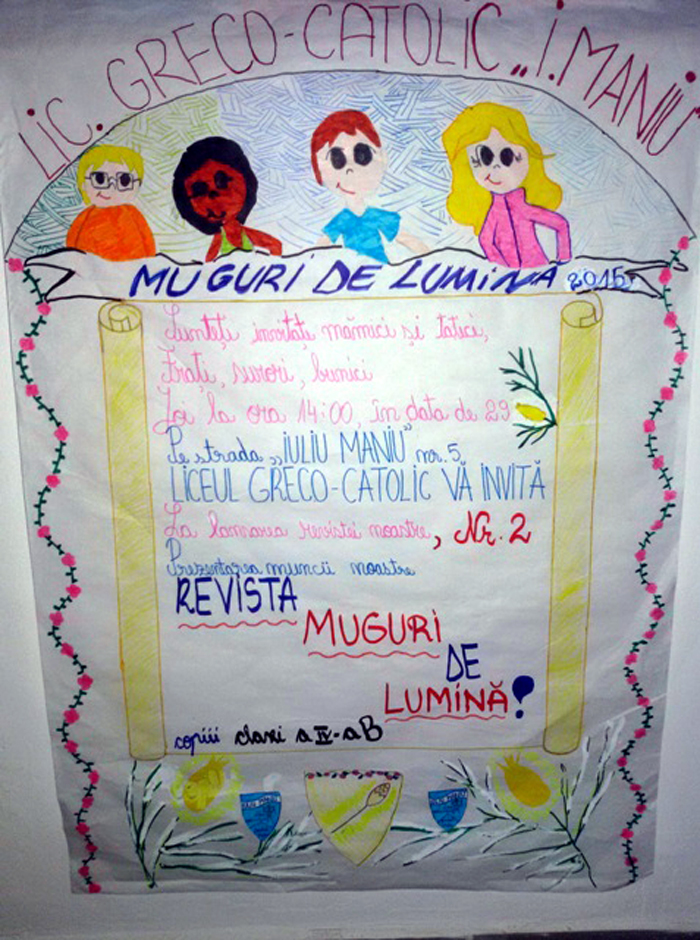 LIC. GRECO-CATOLIC „I. MANIU"
MUGURI DE LUMINA 2015
Sunteți invitați mămici și tatici,
Frați, surori, bunici
Joi la ora 14:00, în data de 29
Pe strada „IULIU MANIU" nr. 5
LICEUL GRECO-CATOLIC VĂ INVITĂ
La lansarea revistei noastre, Nr. 2
Prezentarea muncii noastre
REVISTA
MUGURI
DE
LUMINĂ!
copiii clasei a IV-a B